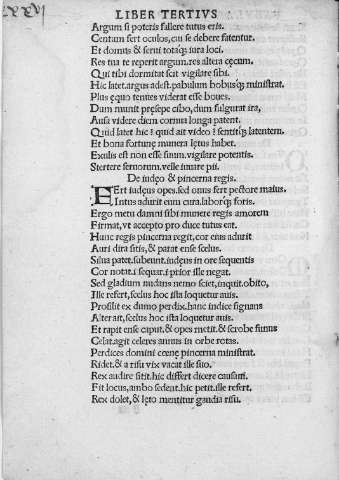 LXXVI
LIBER TERTIVS
Argum si poteris fallere tutus eris.
Centum fert oculos, cui se debere fatentur.
Et domus & serui totaq; iura loci.
Res tua te reperit argum.res altera cęcum.
Qui tibi dormitat scit vigilare sibi.
Hic latet.argus adest.pabulum bobusq; ministrat.
Plus ęquo tenues viderat esse boues.
Dum munit pręsepe cibo, dum fulgurat ira,
Ausa videre diem cornua longa patent.
Quid latet hic? quid ait video? sentitq; latentem.
Et bona fortunę munera lętus habet.
Exulis est non esse suum.vigilare potentis.
Stertere seruorum.velle iuuare pii.
De iudęo & pincerna regis.
FErt iudęus opes.sed onus fert pectore maius.
Intus adurit eum cura.laborq; foris.
Ergo metu damni sibi munere regis amorem
Firmat, vt accepto pro duce tutus eat.
Hunc regis pincerna regit, cor eius adurit
Auri dira sitis, & parat ense scelus.
Silua patet.subeunt.iudęus in ore sequentis
Cor notat.i sequar.i prior ille negat.
Sed gladium nudans nemo sciet, inquit.obito,
Ille refert, scelus hoc ista loquetur auis.
Prosilit ex dumo perdix.hanc indice signans
Alter ait, scelus hoc ista loquetur auis.
Et rapit ense caput, & opes metit.& scrobe funus
Celat.agit celeres annus in orbe rotas.
Perdices domini cœnę pincerna ministrat.
Ridet.& a risu vix vacat ille suo.
Rex audire sitit.hic differt dicere causam.
Fit locus, ambo sedent.hic petit.ille refert.
Rex dolet, & lęto mentitur gaudia risu.